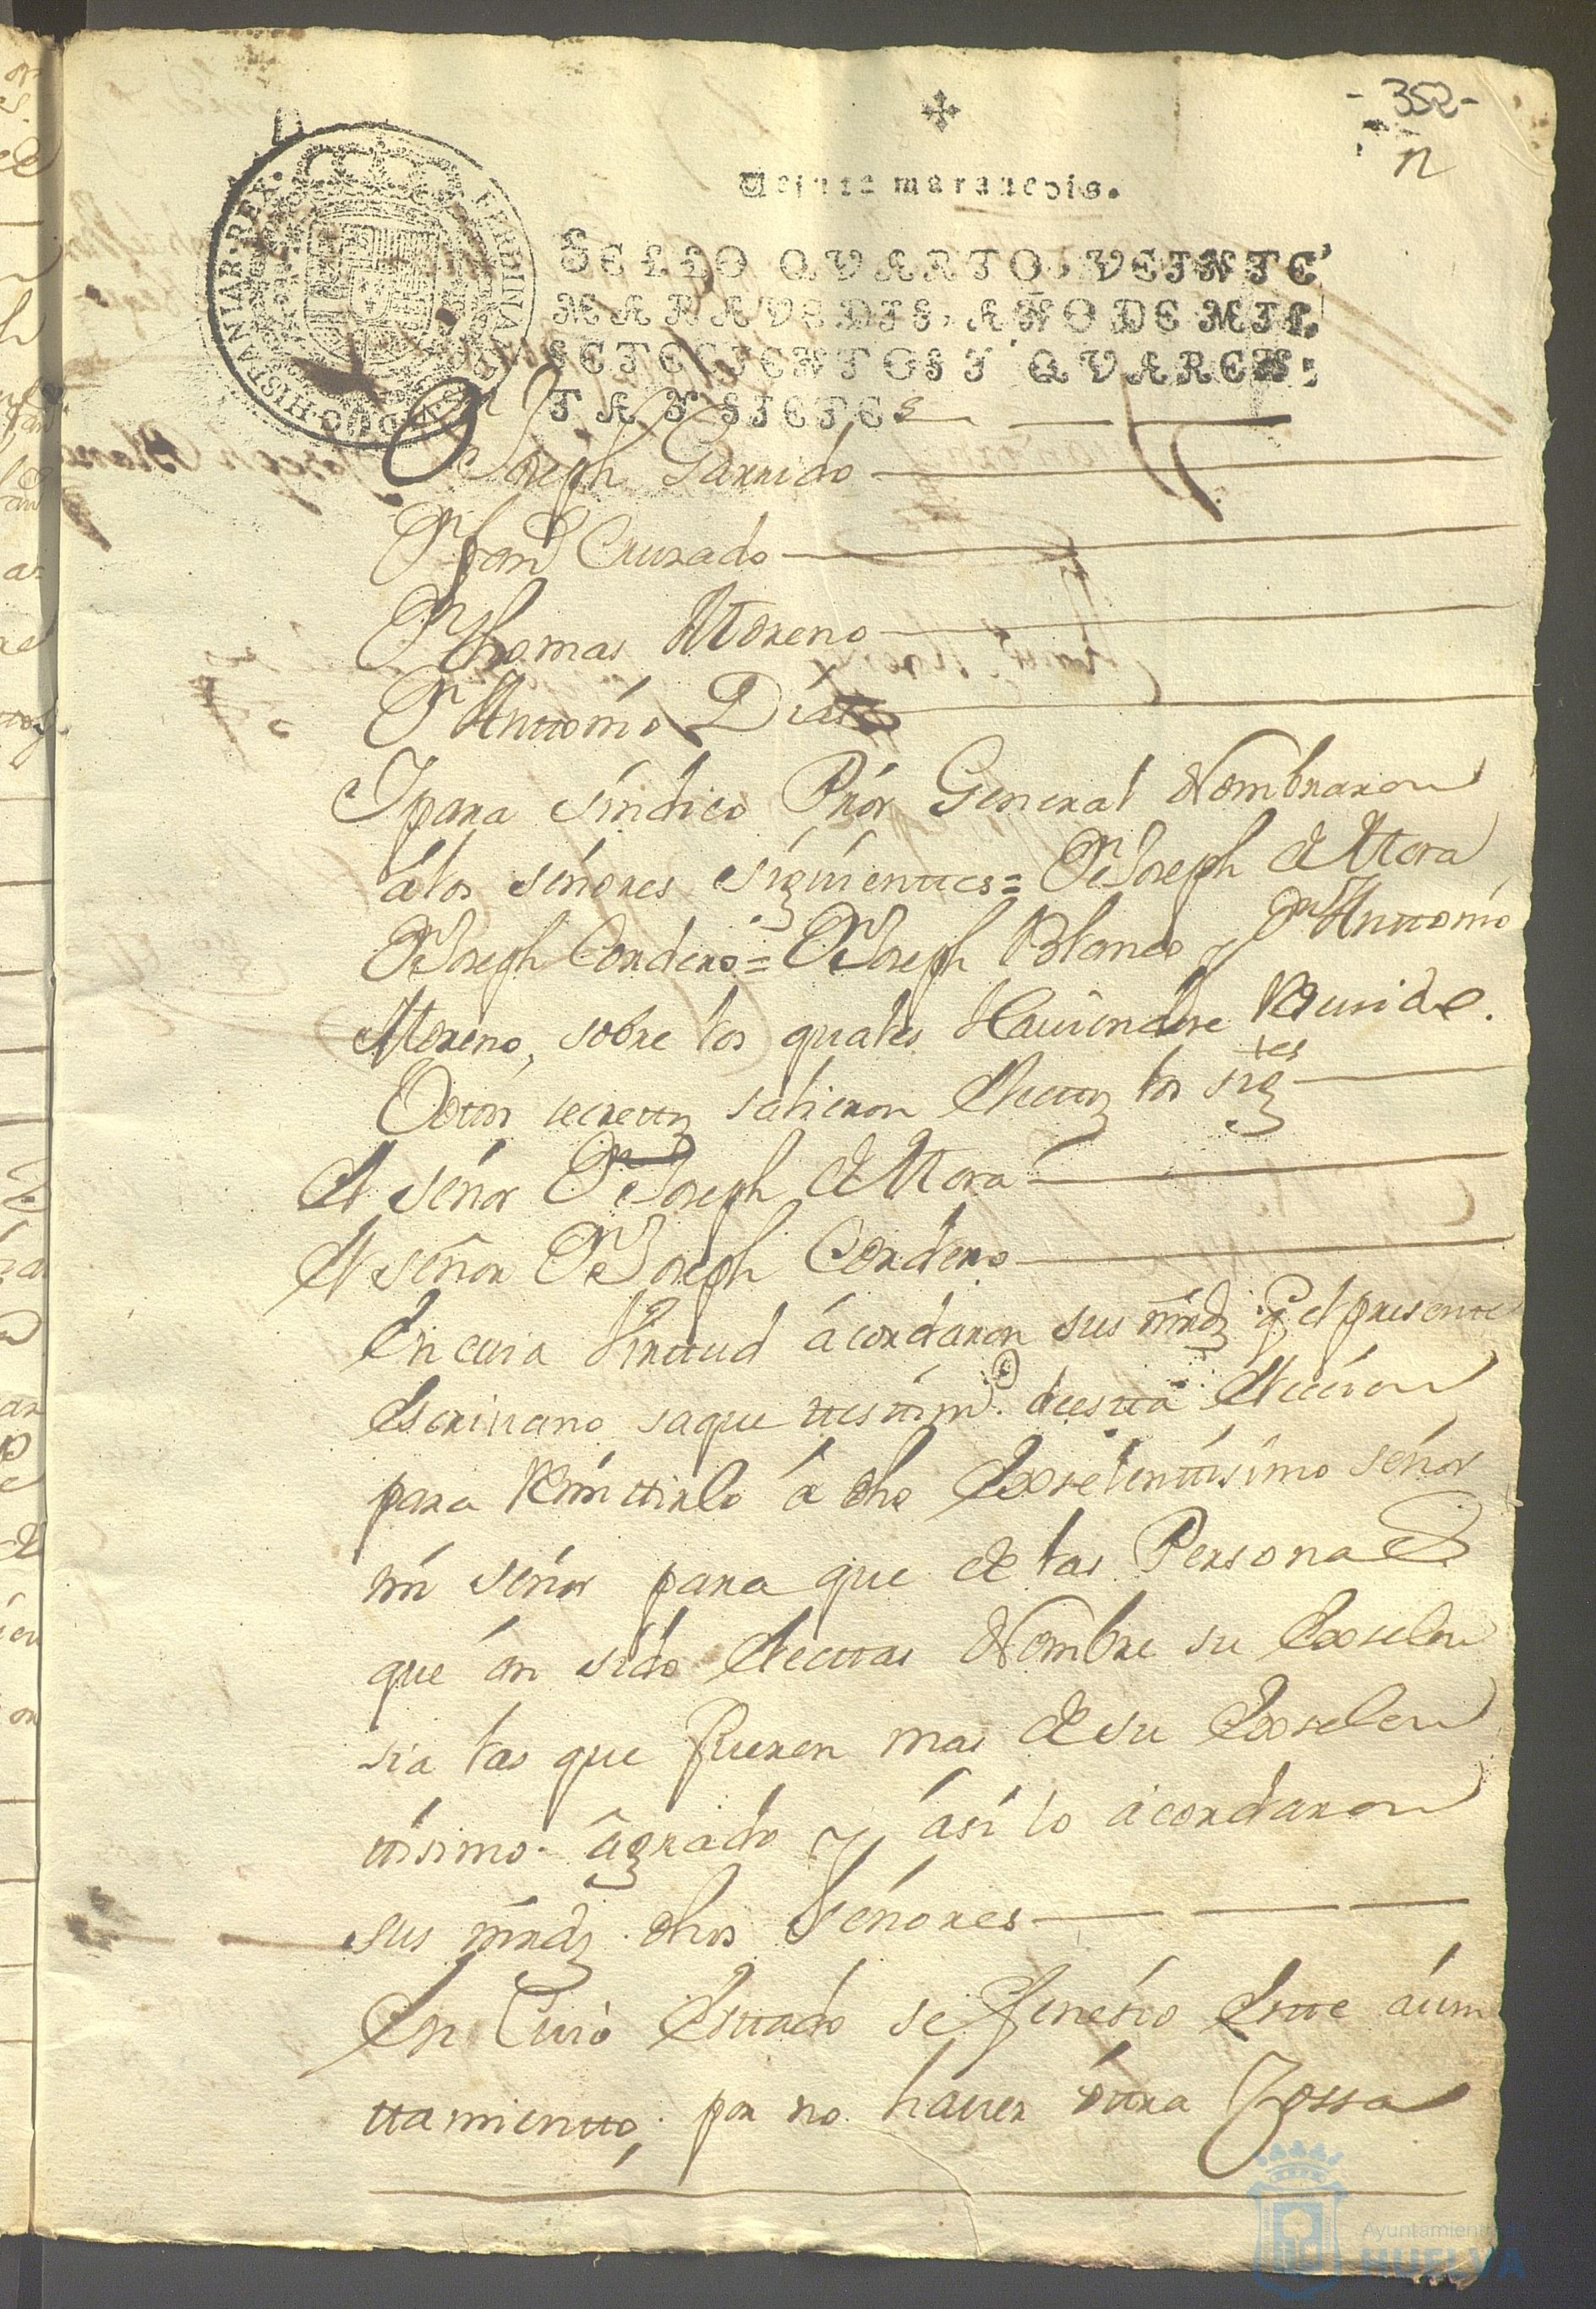 -352-
n
Veinte maravedis.
SELLO QVARTO, VEINTE
MARAVEDIS, AÑO DE MIL
SETECIENTOS Y QVAREN-
TA Y SIETE
FERDINANDVS VI D G HISPANIAR REX
Dn Joseph Garrido
Dn Juan Cruzado
Dn Thomas Moreno
Dn Anttonio Dias
Y para síndico Prór General Nombraron
á los señores siguienttes = Dn Joseph de Mora
Dn Joseph Cordero = Dn Joseph Blanco y Dn Anttonio
Moreno, sobre los quales Haviendose
Votos secrettos salieron Electtos los sigtes
El señor Dn Joseph de Mora
El señor Dn Joseph Cordero
En cuia Virttud ácordaron sus mrds q el presente
Escrivano saque ttesttimo. de estta Elección
para Remittirlo á dho Exselenttísimo señor
mi señor para que de las Personas
que án sido Electtas Nombre su Exselen
sia las que fueren mas de su Exselen
ttísimo ágrado y ásí lo ácordaron
sus mrds dhos Señores
En Cuio Esttado se fenesio Estte áiun
ttamientto, por no haver óttra Cossa
Ayuntamiento de
HUELVA